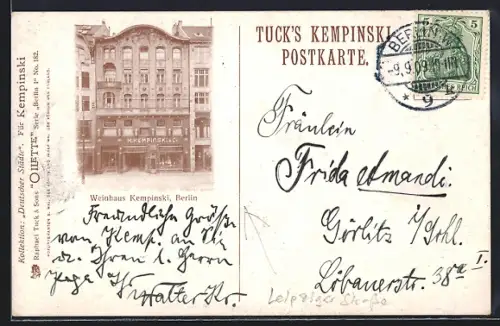 TUCK'S KEMPINSKI
POSTKARTE.
Kollektion: „Deutscher Städte". Für Kempinski
Raphael Tuck & Sons "OILETTE" Serie „Berlin I" No. 182.
M. KEMPINSKI & Co.
Weinhaus Kempinski, Berlin
BERLIN
-9.9.09
* 9
5 5
Freundliche Grüße
von Kemp. an Sie
Herrn
Walter Kr.
Fräulein
Frida Amandi.
Görlitz i/Schl.
Löbauerstr. 38a I.
Leipziger Straße